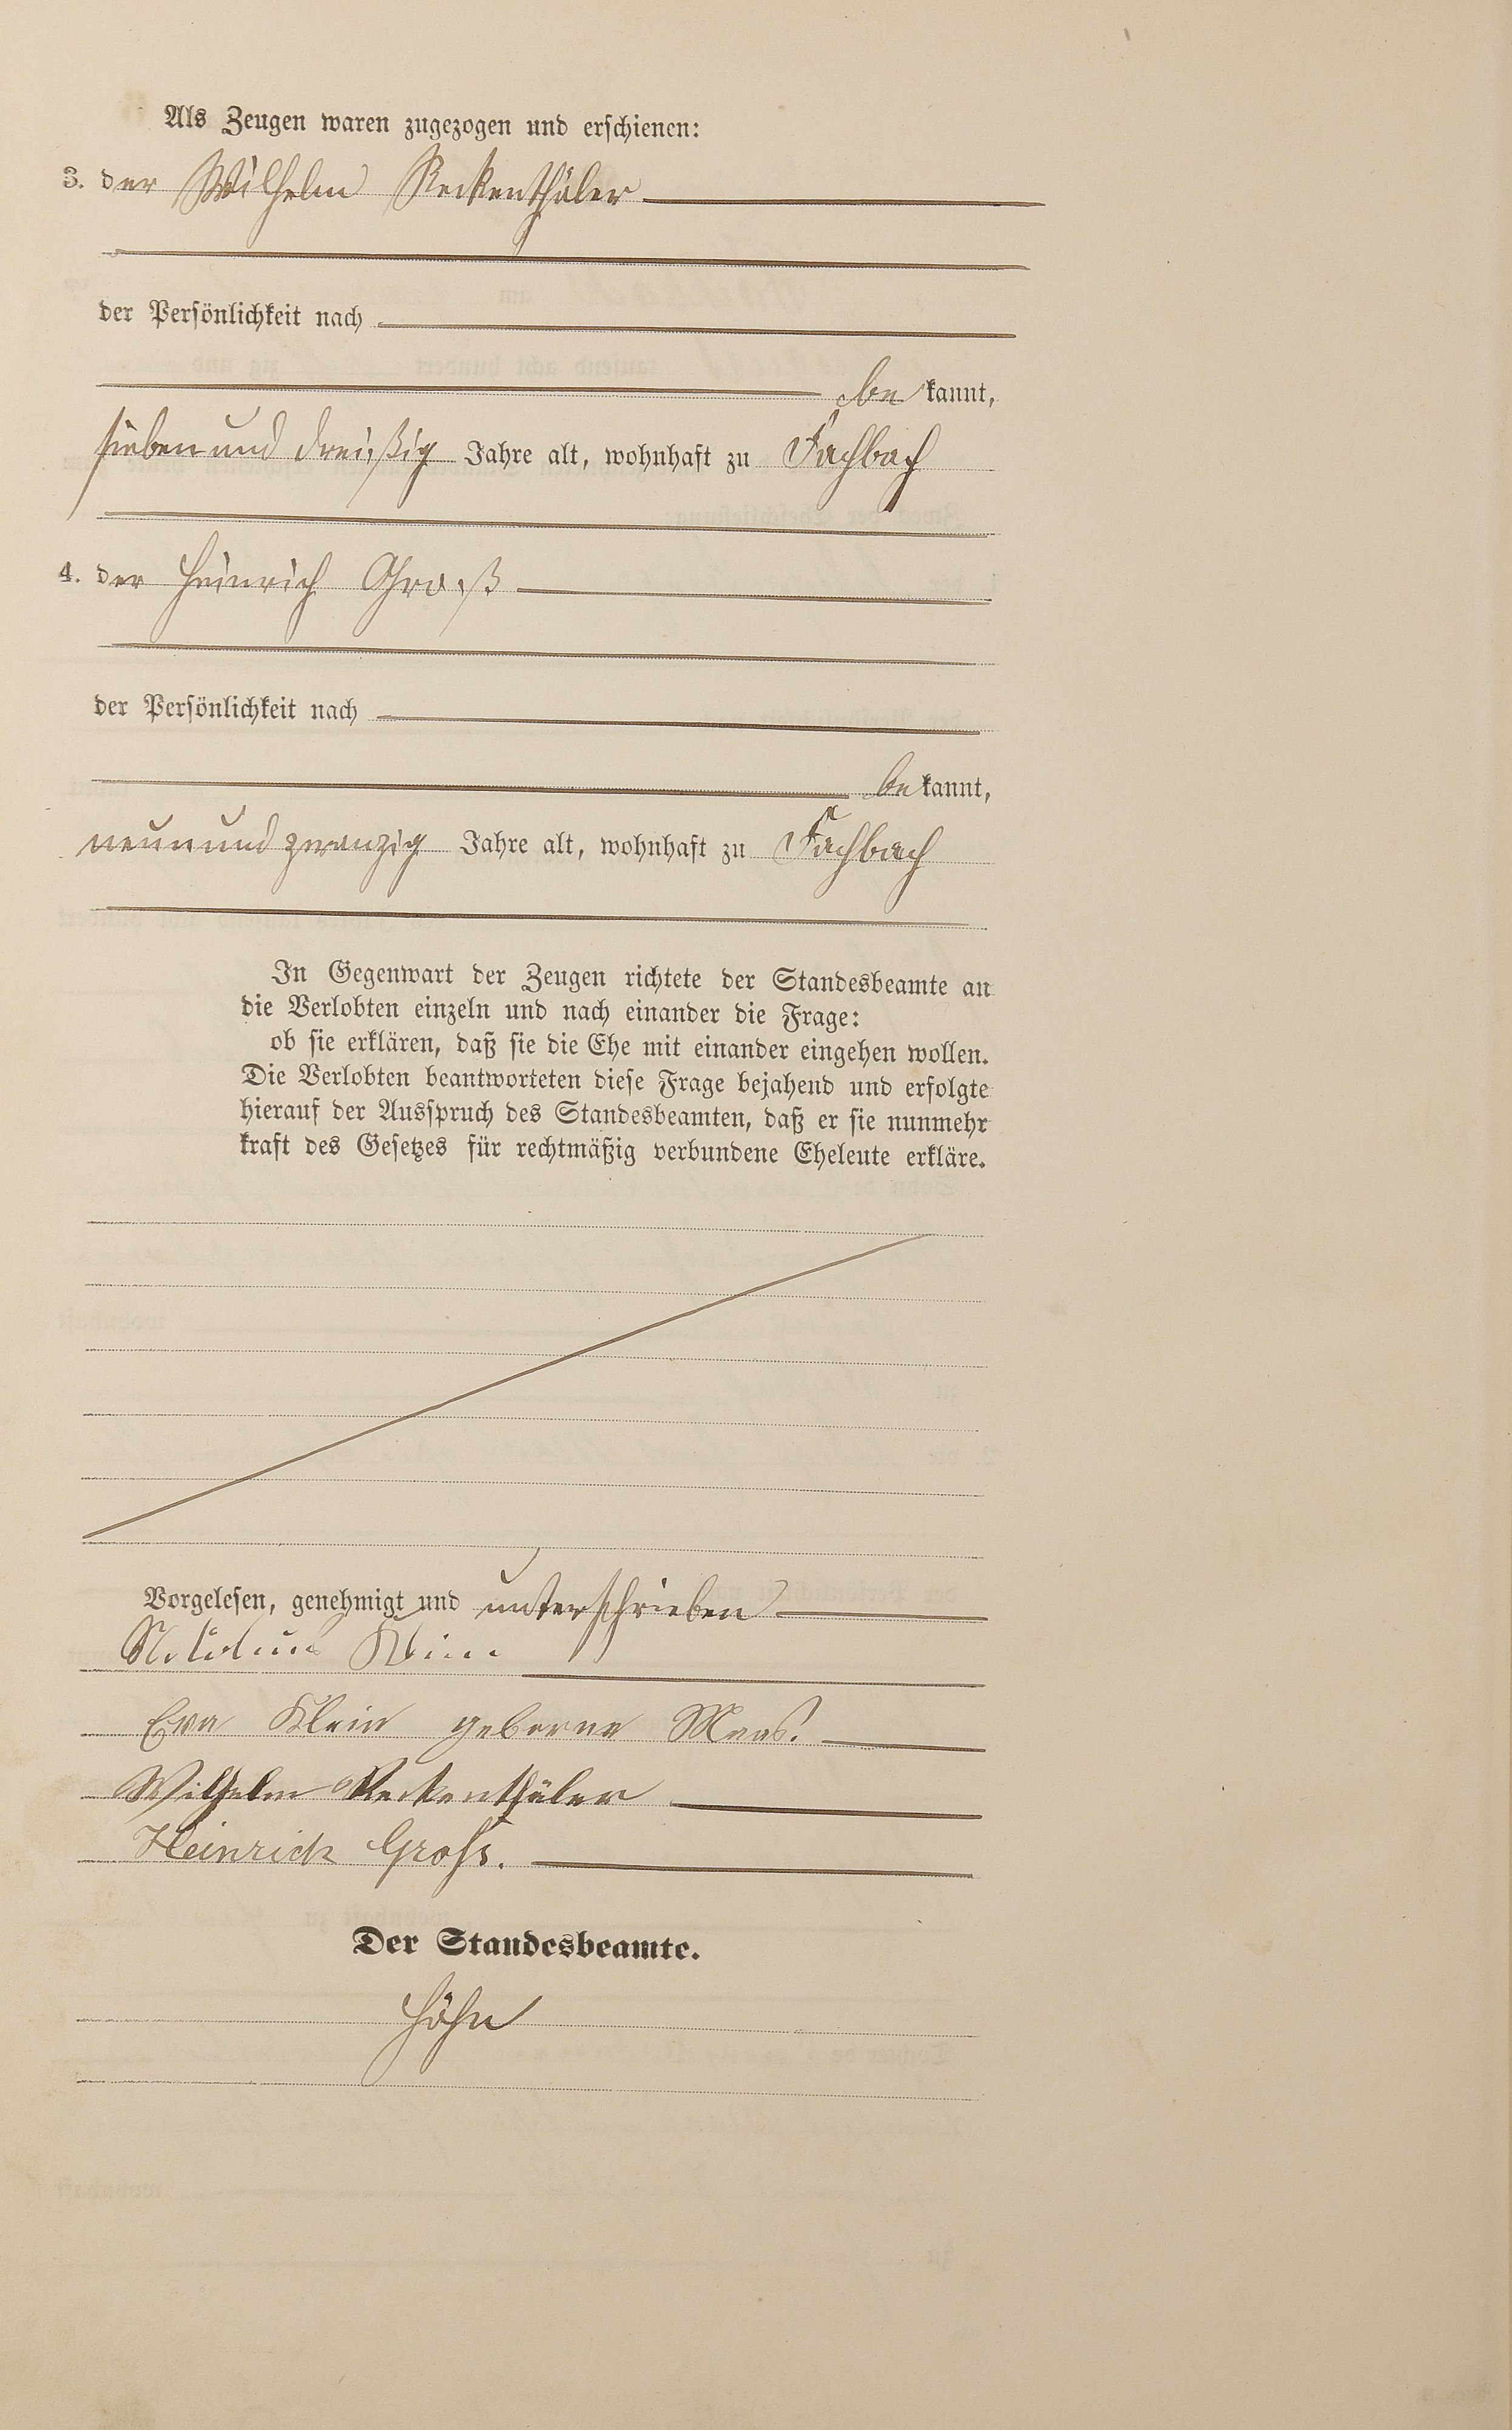 Als Zeugen waren zugezogen und erschienen:
3. der Wilhelm Reckenthäler
der Persönlichkeit nach
be kannt,
sieben und dreißig Jahre alt, wohnhaft zu Fachbach
4. der Heinrich Groß
der Persönlichkeit nach
be kannt,
neun und zwanzig Jahre alt, wohnhaft zu Fachbach
In Gegenwart der Zeugen richtete der Standesbeamte an
die Verlobten einzeln und nach einander die Frage:
ob sie erklären, daß sie die Ehe mit einander eingehen wollen.
Die Verlobten beantworteten diese Frage bejahend und erfolgte
hierauf der Ausspruch des Standesbeamten, daß er sie nunmehr
kraft des Gesetzes für rechtmäßig verbundene Eheleute erkläre.
Vorgelesen, genehmigt und unterschrieben
Klein
Eva Klein geborne
Wilhelm Reckenthäler
Heinrich Groß.
Der Standesbeamte.
Höhn